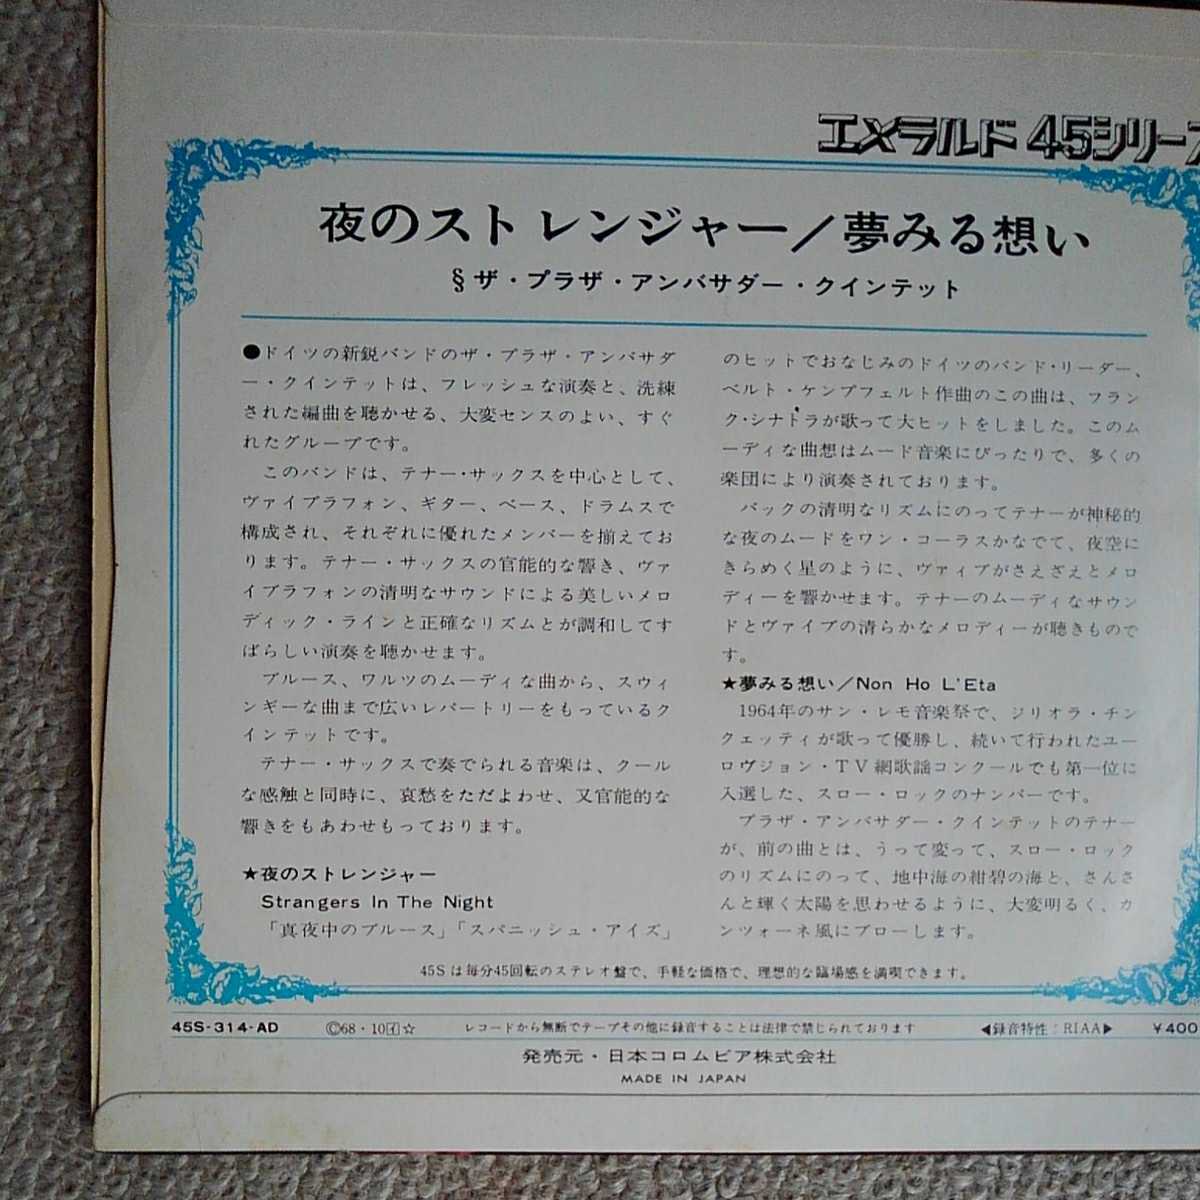 エメラルド45シリーズ
夜のストレンジャー／夢みる想い
§ザ・プラザ・アンバサダー・クインテット
●ドイツの新鋭バンドのザ・プラザ・アンバサダ
ー・クインテットは、フレッシュな演奏と、洗練
された編曲を聴かせる、大変センスのよい、すぐ
れたグループです。
このバンドは、テナー・サックスを中心として、
ヴァイブラフォン、ギター、ベース、ドラムスで
構成され、それぞれに優れたメンバーを揃えてお
ります。テナー・サックスの官能的な響き、ヴァ
イブラフォンの清明なサウンドによる美しいメロ
ディック・ラインと正確なリズムとが調和してす
ばらしい演奏を聴かせます。
ブルース、ワルツのムーディな曲から、スウィ
ンギーな曲まで広いレパートリーをもっているク
インテットです。
テナー・サックスで奏でられる音楽は、クール
な感触と同時に、哀愁をただよわせ、又官能的な
響きをもあわせもっております。
★夜のストレンジャー
Strangers In The Night
「真夜中のブルース」「スパニッシュ・アイズ」
のヒットでおなじみのドイツのバンド・リーダー、
ベルト・ケンプフェルト作曲のこの曲は、フラン
ク・シナトラが歌って大ヒットをしました。このム
ーディな曲想はムード音楽にぴったりで、多くの
楽団により演奏されております。
バックの清明なリズムにのってテナーが神秘的
な夜のムードをワン・コーラスかなでて、夜空に
きらめく星のように、ヴァイブがさえざえとメロ
ディーを響かせます。テナーのムーディなサウン
ドとヴァイブの清らかなメロディーが聴きもので
す。
★夢みる想い／Non Ho L'Eta
1964年のサン・レモ音楽祭で、ジリオラ・チン
クェッティが歌って優勝し、続いて行われたユー
ロヴジョン・TV網歌謡コンクールでも第一位に
入選した、スロー・ロックのナンバーです。
プラザ・アンバサダー・クインテットのテナー
が、前の曲とは、うって変って、スロー・ロック
のリズムにのって、地中海の紺碧の海と、さんさ
んと輝く太陽を思わせるように、大変明るく、カ
ンツォーネ風にブローします。
45Sは毎分45回転のステレオ盤で、手軽な価格で、理想的な臨場感を満喫できます。
45S-314-AD ©68・10イ☆ レコードから無断でテープその他に録音することは法律で禁じられております ◀録音特性：RIAA▶ ￥400
発売元・日本コロムビア株式会社
MADE IN JAPAN